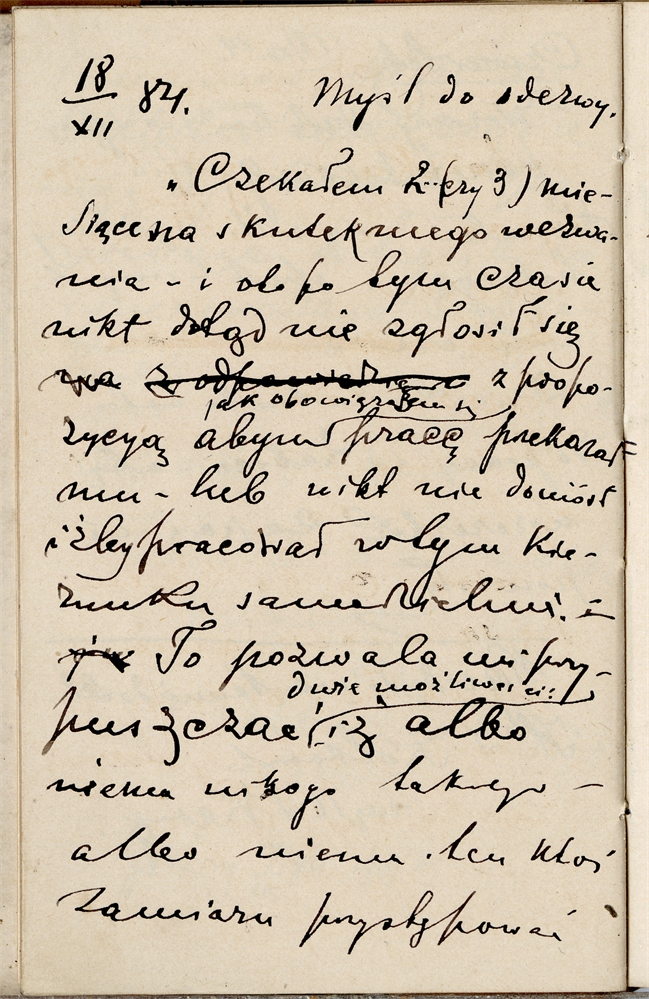 18/XII 84. Myśl do odezwy.
„Czekałem 2 (czy 3) mie-
siące na skutek mego wezwa-
nia - i oto po tym czasie
nikt dotąd nie zgłosił się
z propo-
jak obowiązałem się
zycyą abym pracę przekazał
mu - lub nikt nie doniósł
iżby pracował w tym kie-
runku samodzielnie. -
To pozwala mi przy-
dwie możliwości:
puszczać, iż albo
niema nikogo takiego -
albo niema ten ktoś
zamiaru przystępować